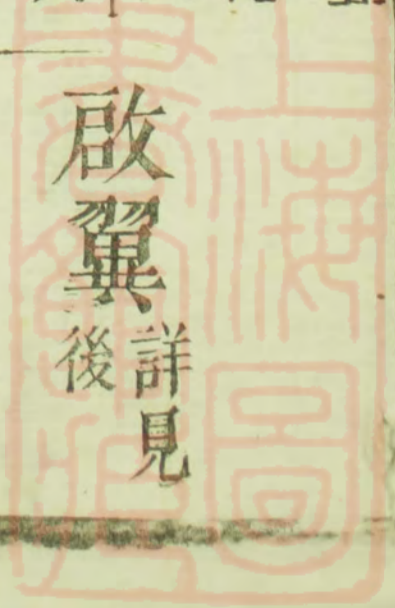 啟翼
詳見
後